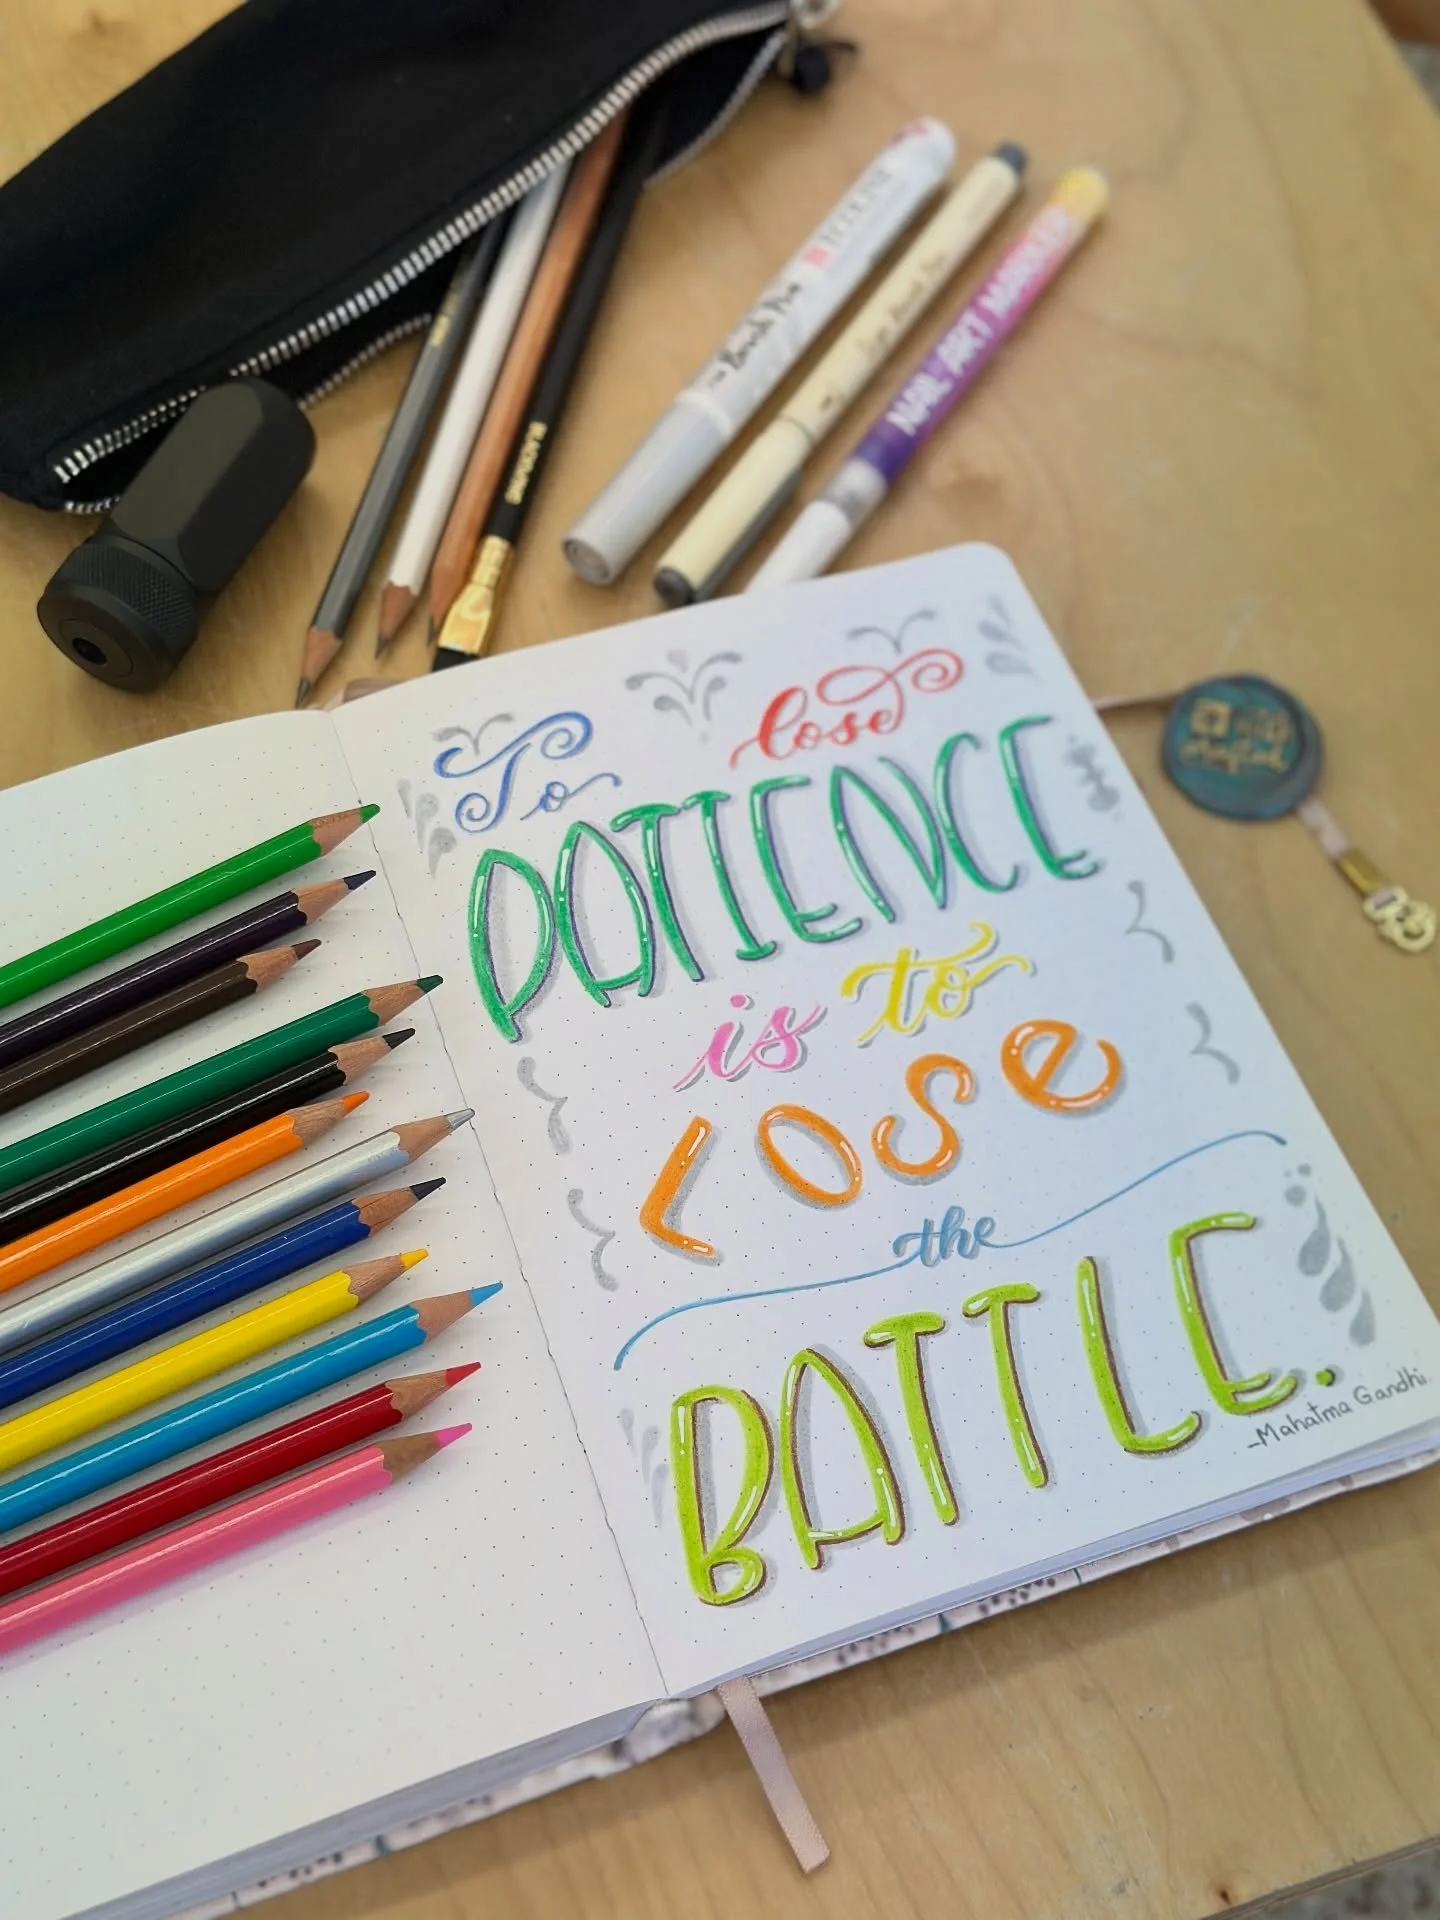 Brush Pen
NAIL ART MARKER
BLACKWING
To lose
PATIENCE
is to
LOSE
the
BATTLE.
-Mahatma Gandhi.